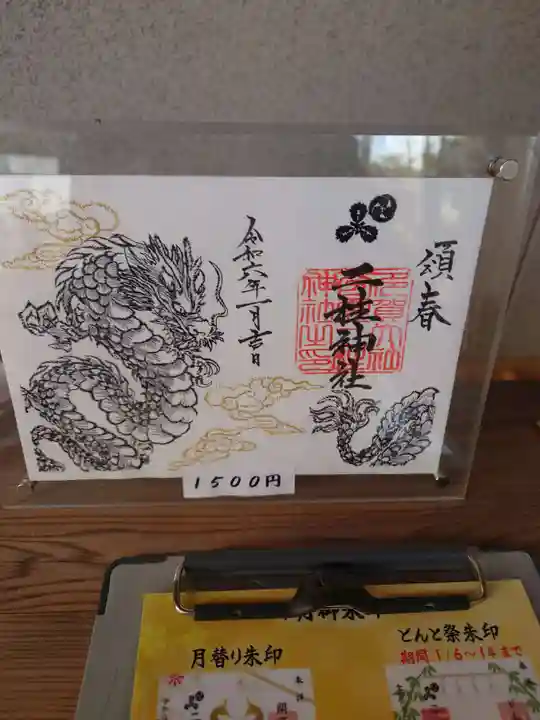 頒春
二柱神社
令和六年一月吉日
1500円
月替り朱印
とんと祭朱印
期間1/6～14まで